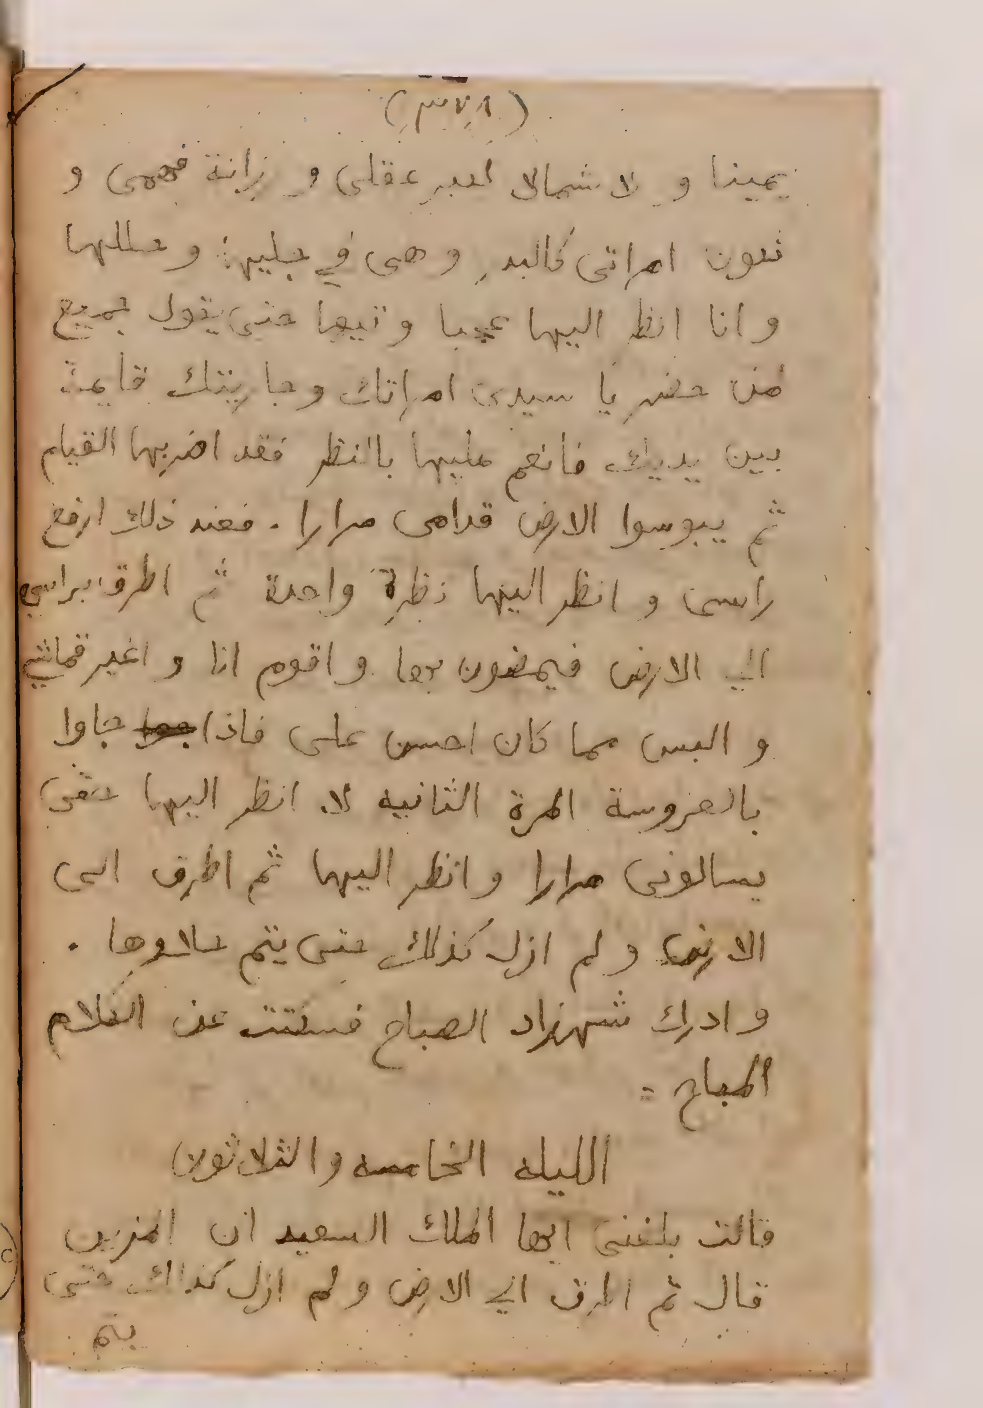 (٣٧٨)
يمينا و لا شمالا لكبر عقلى و رزانة فهمى و
تكون امراتى كالبدر و هى في حليها و حللها
و انا انظر اليها عجبا و تيها حتى يقول جميع
من حضر يا سيدى امراتك وجاريتك قايمة
بين يديك فانعم عليها بالنظر فقد اضربها القيام
ثم يبوسوا الارض قدامى مرارا . فعند ذلك ارفع
راسى و انظر اليها نظرة واحدة ثم اطرق براسي
الي الارض فيمضون بها و اقوم انا و اغير قماشي
و البس مما كان احسن على فاذا جاوا
بالعروسة المرة الثانيه لا انظر اليها حتى
يسالونى مرارا و انظر اليها ثم اطرق الى
الارض و لم ازل كذلك حتى يتم جلاوها .
و ادرك شهرزاد الصباح فسكتت عن الكلام
المباح =
الليله الخامسه و الثلاثون
قالت بلغنى ايها الملك السعيد ان المزين
قال ثم اطرق الي الارض و لم ازل كذلك حتى
يتم